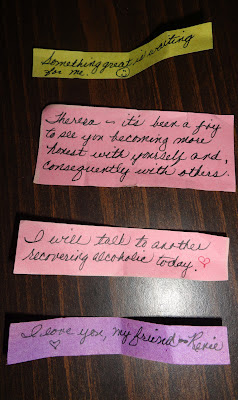 Something great is waiting
for me. ☺
Theresa - it's been a joy
to see you becoming more
honest with yourself and,
consequently with others.
I will talk to another
recovering alcoholic today. ♡
I love you, my friend - Renie
♡